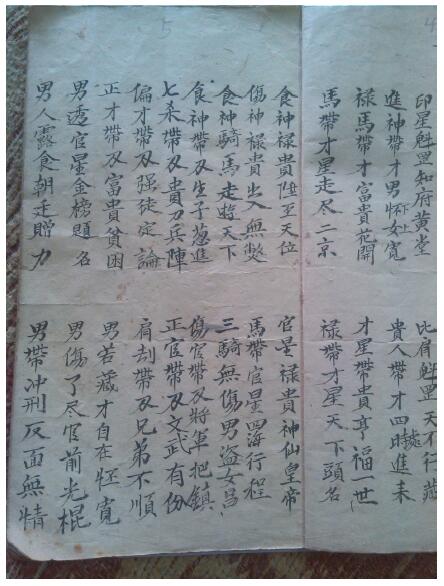 4
印星魁罡知府黃堂
比肩魁罡天不行藏
進神帶才男怀女寬
貴人帶才四時進来
禄馬帶才富貴花開
才星帶貴亨福一世
馬帶才星走尽二京
禄帶才星天下頭名
5
食神禄貴陞至天位
官星禄貴神仙皇帝
傷神禄貴出入無獘
馬帶官星四海行程
食神騎馬走遊天下
三騎無傷男盜女昌
食神帶刄生子忽進
傷官帶刄將軍把鎮
七杀帶刄貴刀兵陣
正官帶刄文武有份
偏才帶刄强徒定論
肩刦帶刄兄弟不順
正才帶刄富貴貧困
男若藏才自在怀寬
男透官星金榜題名
男傷了尽官前光棍
男人露食朝廷贈力
男帶冲刑反面無情